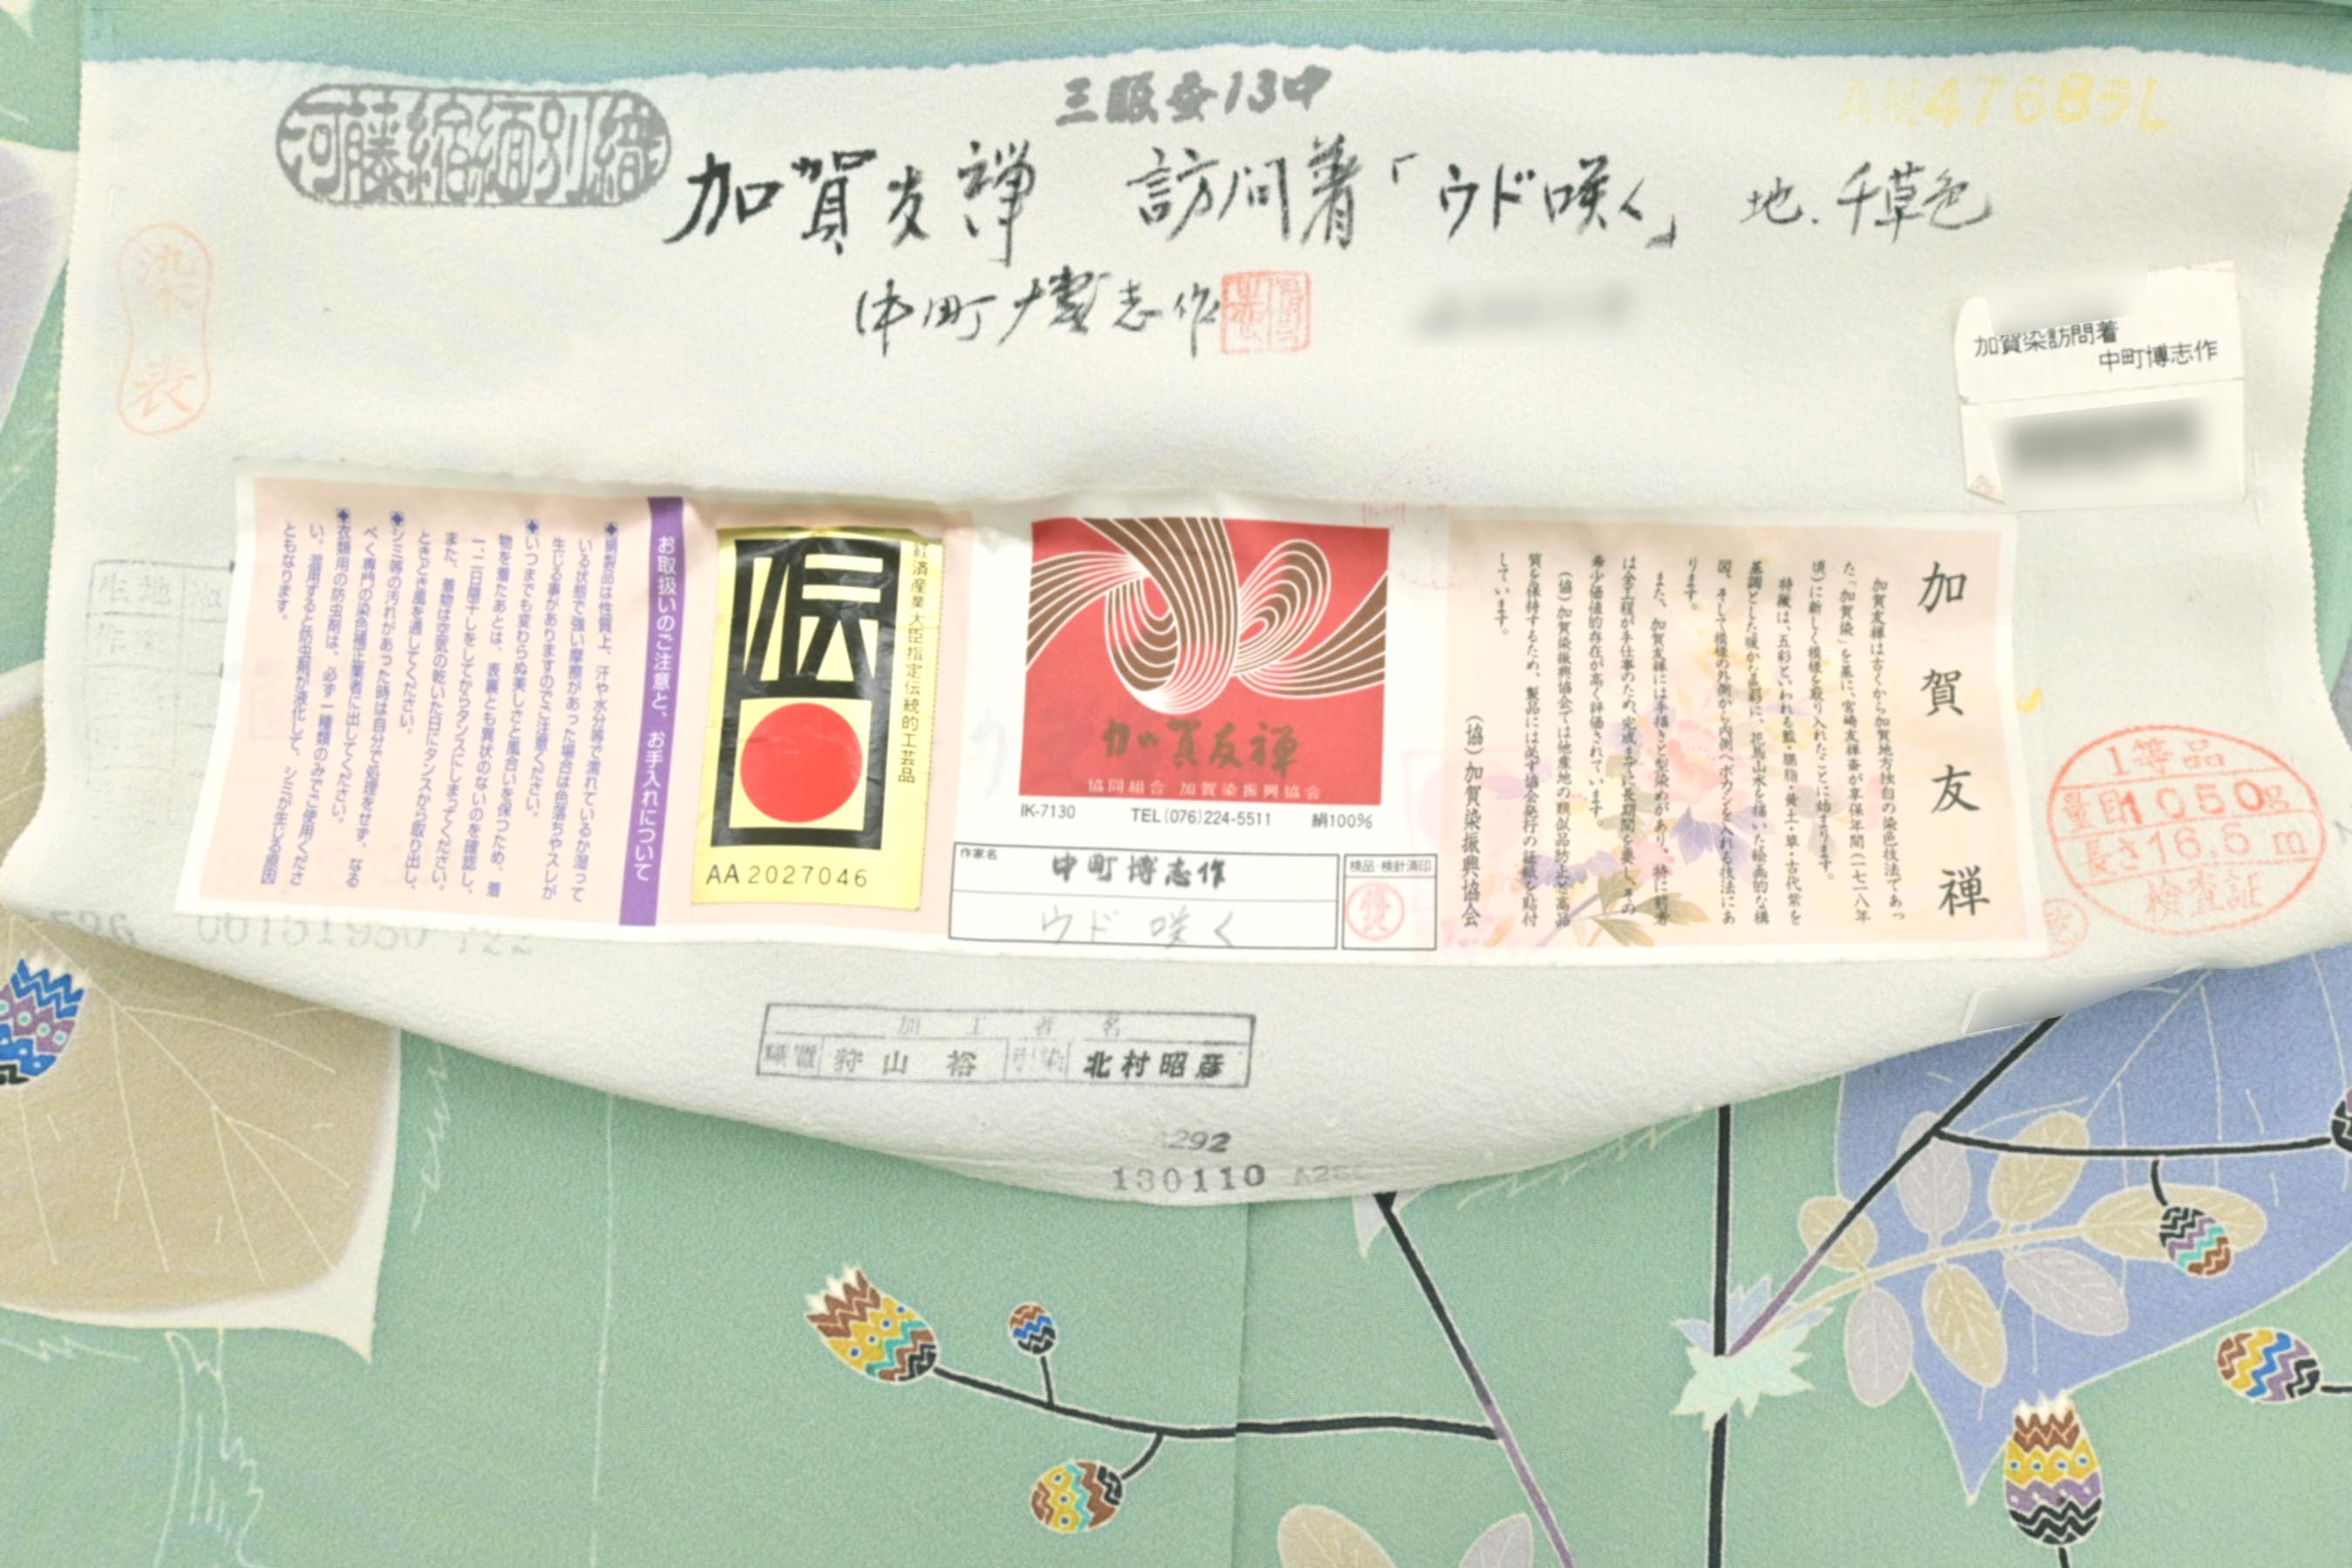 河藤縮緬別織
三眠蚕13中
加賀友禅 訪問着「ウド咲く」 地.千草色
中町博志作
染表
加賀染訪問着
中町博志作
加賀友禅
加賀友禅は古くから加賀地方独自の染色技法であっ
た「加賀染」を基に、宮崎友禅斎が享保年間(一七一八年
頃)に新しく模様を取り入れたことに始まります。
特徴は、五彩といわれる藍・臙脂・黄土・草・古代紫を
基調とした暖かな色彩に、花鳥山水を描いた絵画的な構
図、そして模様の外側から内側へボカシを入れる技法にあ
ります。
また、加賀友禅には手描きと型染めがあり、特に前者
は全工程が手仕事のため、完成までに長期間を要し、その
希少価値的存在が高く評価されています。
(協)加賀染振興協会では他産地の類似品防止と高品
質を保持するため、製品には必ず協会発行の証紙を貼付
しています。
(協)加賀染振興協会
加賀友禅
協同組合 加賀染振興協会
IK-7130 TEL(076)224-5511 絹100%
作家名
中町博志作
ウド 咲く
検品・検針済印
経済産業大臣指定伝統的工芸品
伝
AA 2027046
お取扱いのご注意と、お手入れについて
◆絹製品は性質上、汗や水分等で濡れているか湿って
いる状態で強い摩擦があった場合は色落ちやスレが
生じる事がありますのでご注意ください。
◆いつまでも変わらぬ美しさと風合いを保つため、着
物を着たあとは、表裏とも異状のないのを確認し、
一、二日陰干しをしてからタンスにしまってください。
また、着物は空気の乾いた日にタンスから取り出し、
ときどき風を通してください。
◆シミ等の汚れがあった時は自分で処理をせず、なる
べく専門の染色補正業者に出してください。
◆衣類用の防虫剤は、必ず一種類のみでご使用くださ
い。混用すると防虫剤が液化して、シミが生じる原因
ともなります。
1等品
量目1050g
長さ16.5m
検査証
生地
加工者名
糊置 狩山裕 引染 北村昭彦
A292
130110